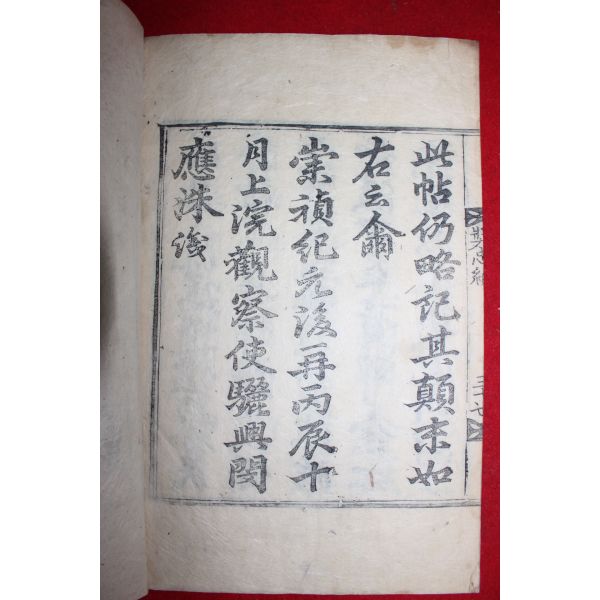 此帖仍略記其顛末如
右云爾
崇禎紀元後再丙辰十
月上浣觀察使驪興閔
應洙後
三十七